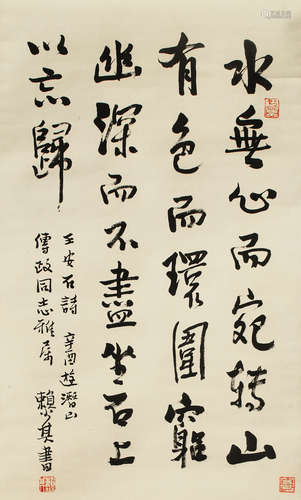 水無心而宛轉山
有色而環圍窮
幽深而不盡坐石上
以忘歸
王安石詩 辛酉遊潛山
傅政同志雅属 賴少其書